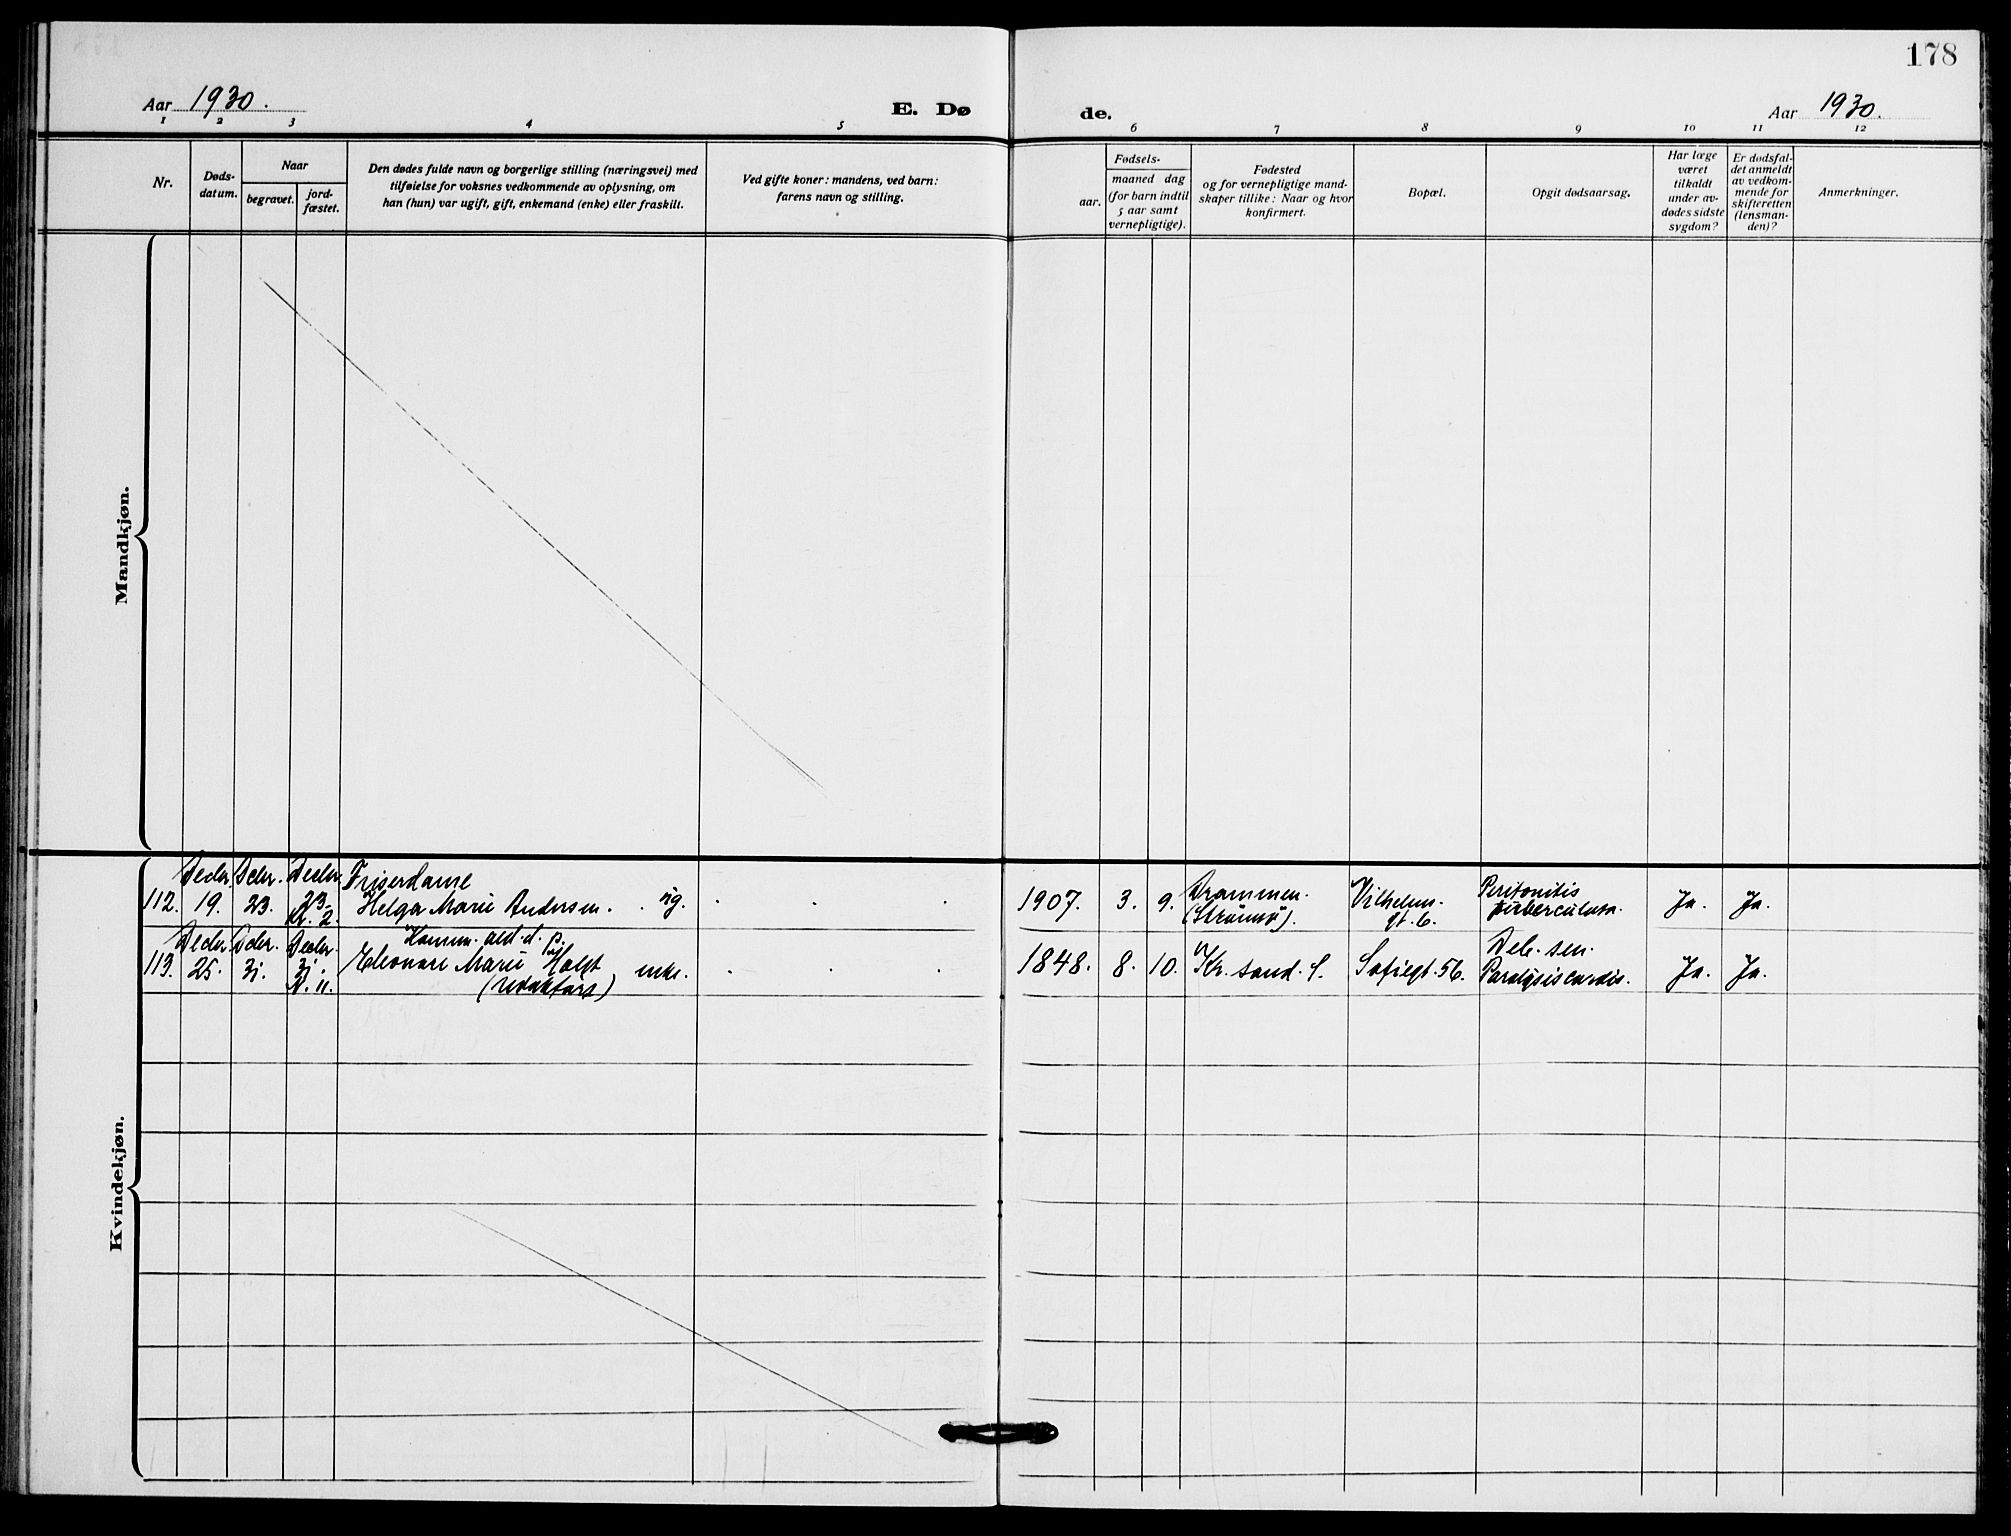 178
Aar 1930.
E. Døde.
Aar 1930.
1 2 3 4 5 6 7 8 9 10 11 12
Nr.
Døds-
datum.
Naar
begravet.
jord-
fæstet.
Den dødes fulde navn og borgerlige stilling (næringsvei) med
tilføielse for voksnes vedkommende av oplysning, om
han (hun) var ugift, gift, enkemand (enke) eller fraskilt.
Ved gifte koner: mandens, ved barn:
farens navn og stilling.
Fødsels-
aar.
maaned dag
(for barn indtil
5 aar samt
vernepligtige).
Fødested
og for vernepligtige mand-
skaper tillike: Naar og hvor
konfirmert.
Bopæl.
Opgit dødsaarsag.
Har læge
været
tilkaldt
under av-
dødes sidste
sygdom?
Er dødsfal-
det anmeldt
av vedkom-
mende for
skifteretten
(lensman-
den)?
Anmerkninger.
Mandkjøn.
Kvindekjøn.
Decbr. Decbr. Decbr. Friserdame
112. 19. 23. 23. Helga Marie Andersen. ug. 1907. 3. 9. Drammen. Vilhelms- Peritonitis Ja. Ja.
kl. 2. (Strømsø). gt. 6. tuberculosa.
Decbr. Decbr. Decbr.
113. 25. 31. 31. Eleonore Marie enke. 1848. 8. 10. Kr.sand. S. Sofiegt. 56. Deb. sen. Ja. Ja.
kl. 11. (redaktørs) Paralysis cordis.